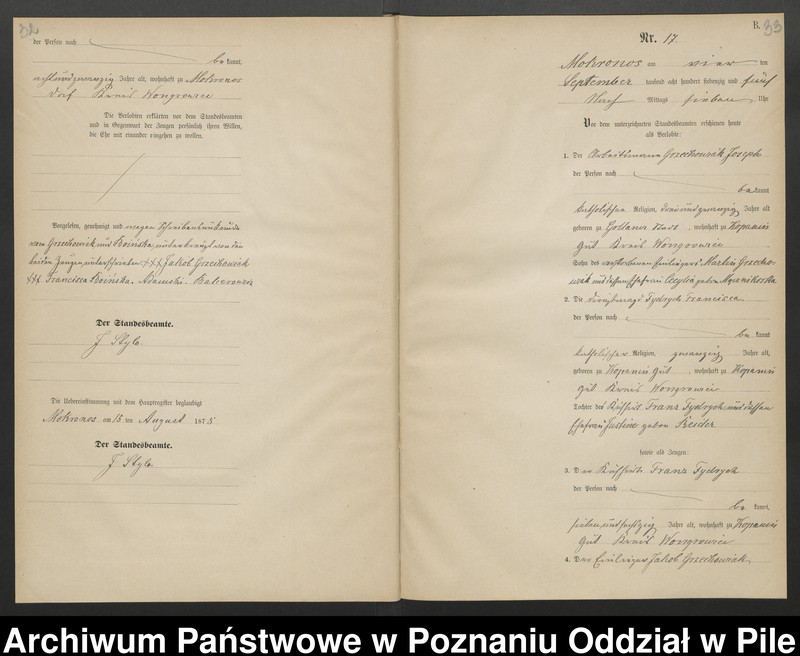 32
der Person nach
be kannt,
achtundzwanzig Jahre alt, wohnhaft zu Mokronos
Dorf Kreis Wongrowiec
Die Verlobten erklärten vor dem Standesbeamten
und in Gegenwart der Zeugen persönlich ihren Willen,
die Ehe mit einander eingehen zu wollen.
Vorgelesen, genehmigt und wegen Schreibensunkunde
vom Grzechowiak und Kosinska, unterkreuzt von den
beiden Zeugen unterschrieben +++ Jakob Grzechowiak
+++ Francisca Kosińska. Adamski.
Der Standesbeamte.
J Stylo.
Die Uebereinstimmung mit dem Hauptregister beglaubigt
Mokronos am 15 ten August 1875
Der Standesbeamte.
J Stylo.
B.
33
Nr. 17.
Mokronos am vier ten
September tausend acht hundert siebenzig und fünf
Nach Mittags sieben Uhr
Vor dem unterzeichneten Standesbeamten erschienen heute
als Verlobte:
1. Der Arbeitsmann Grzechowiak Joseph
der Person nach
be kannt
katholischer Religion, dreiundzwanzig Jahre alt
geboren zu Gollancz Stadt, wohnhaft zu Kopanin
Gut Kreis Wongrowiec
Sohn des verstorbenen Einliegers Martin Grzecho-
wiak und dessen Ehefrau Cecylia geborn
2. Die Francisca
der Person nach
be kannt
katholischer Religion, zwanzig Jahre alt,
geboren zu Kopanin Gut, wohnhaft zu Kopanin
Gut Kreis Wongrowiec
Tochter des Kuhhirt Franz Fydrych und dessen
Ehefrau Justine geborn
sowie als Zeugen:
3. Der Kuhhirte Franz Fydrych
der Person nach
be kannt,
Jahre alt, wohnhaft zu Kopanin
Gut Kreis Wongrowiec
4. Der Einlieger Jakob Grzechowiak
Archiwum Państwowe w Poznaniu Oddział w Pile